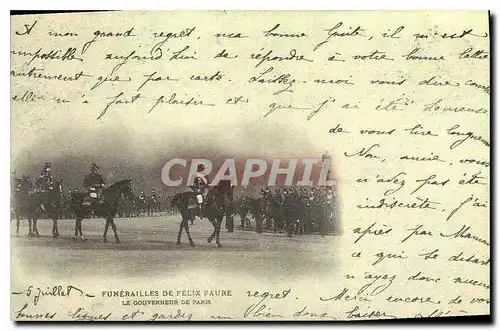 A mon grand regret, ma bonne Guite, il m'est
impossible aujourd'hui de répondre à votre bonne lettre
autrement que par carte. Laissez-moi vous dire combien
elle m'a fait plaisir et que j'ai été heureuse
de vous lire longuement
Non, amie, vous
n'avez pas été
indiscrète. J'ai
après par Maman
ce qui se
n'ayez donc aucun
regret. Merci encore de vos
bonnes lignes et gardez un bien doux baiser
CPARAMA
5 Juillet
FUNÉRAILLES DE FÉLIX FAURE
LE GOUVERNEUR DE PARIS